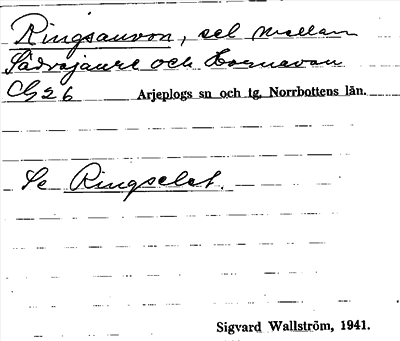 Ringsauvon, sel mellan
Sädvajaure och Hornavan
CG26 Arjeplogs sn och tg, Norrbottens län.
Se Ringselet.
Sigvard Wallström, 1941.